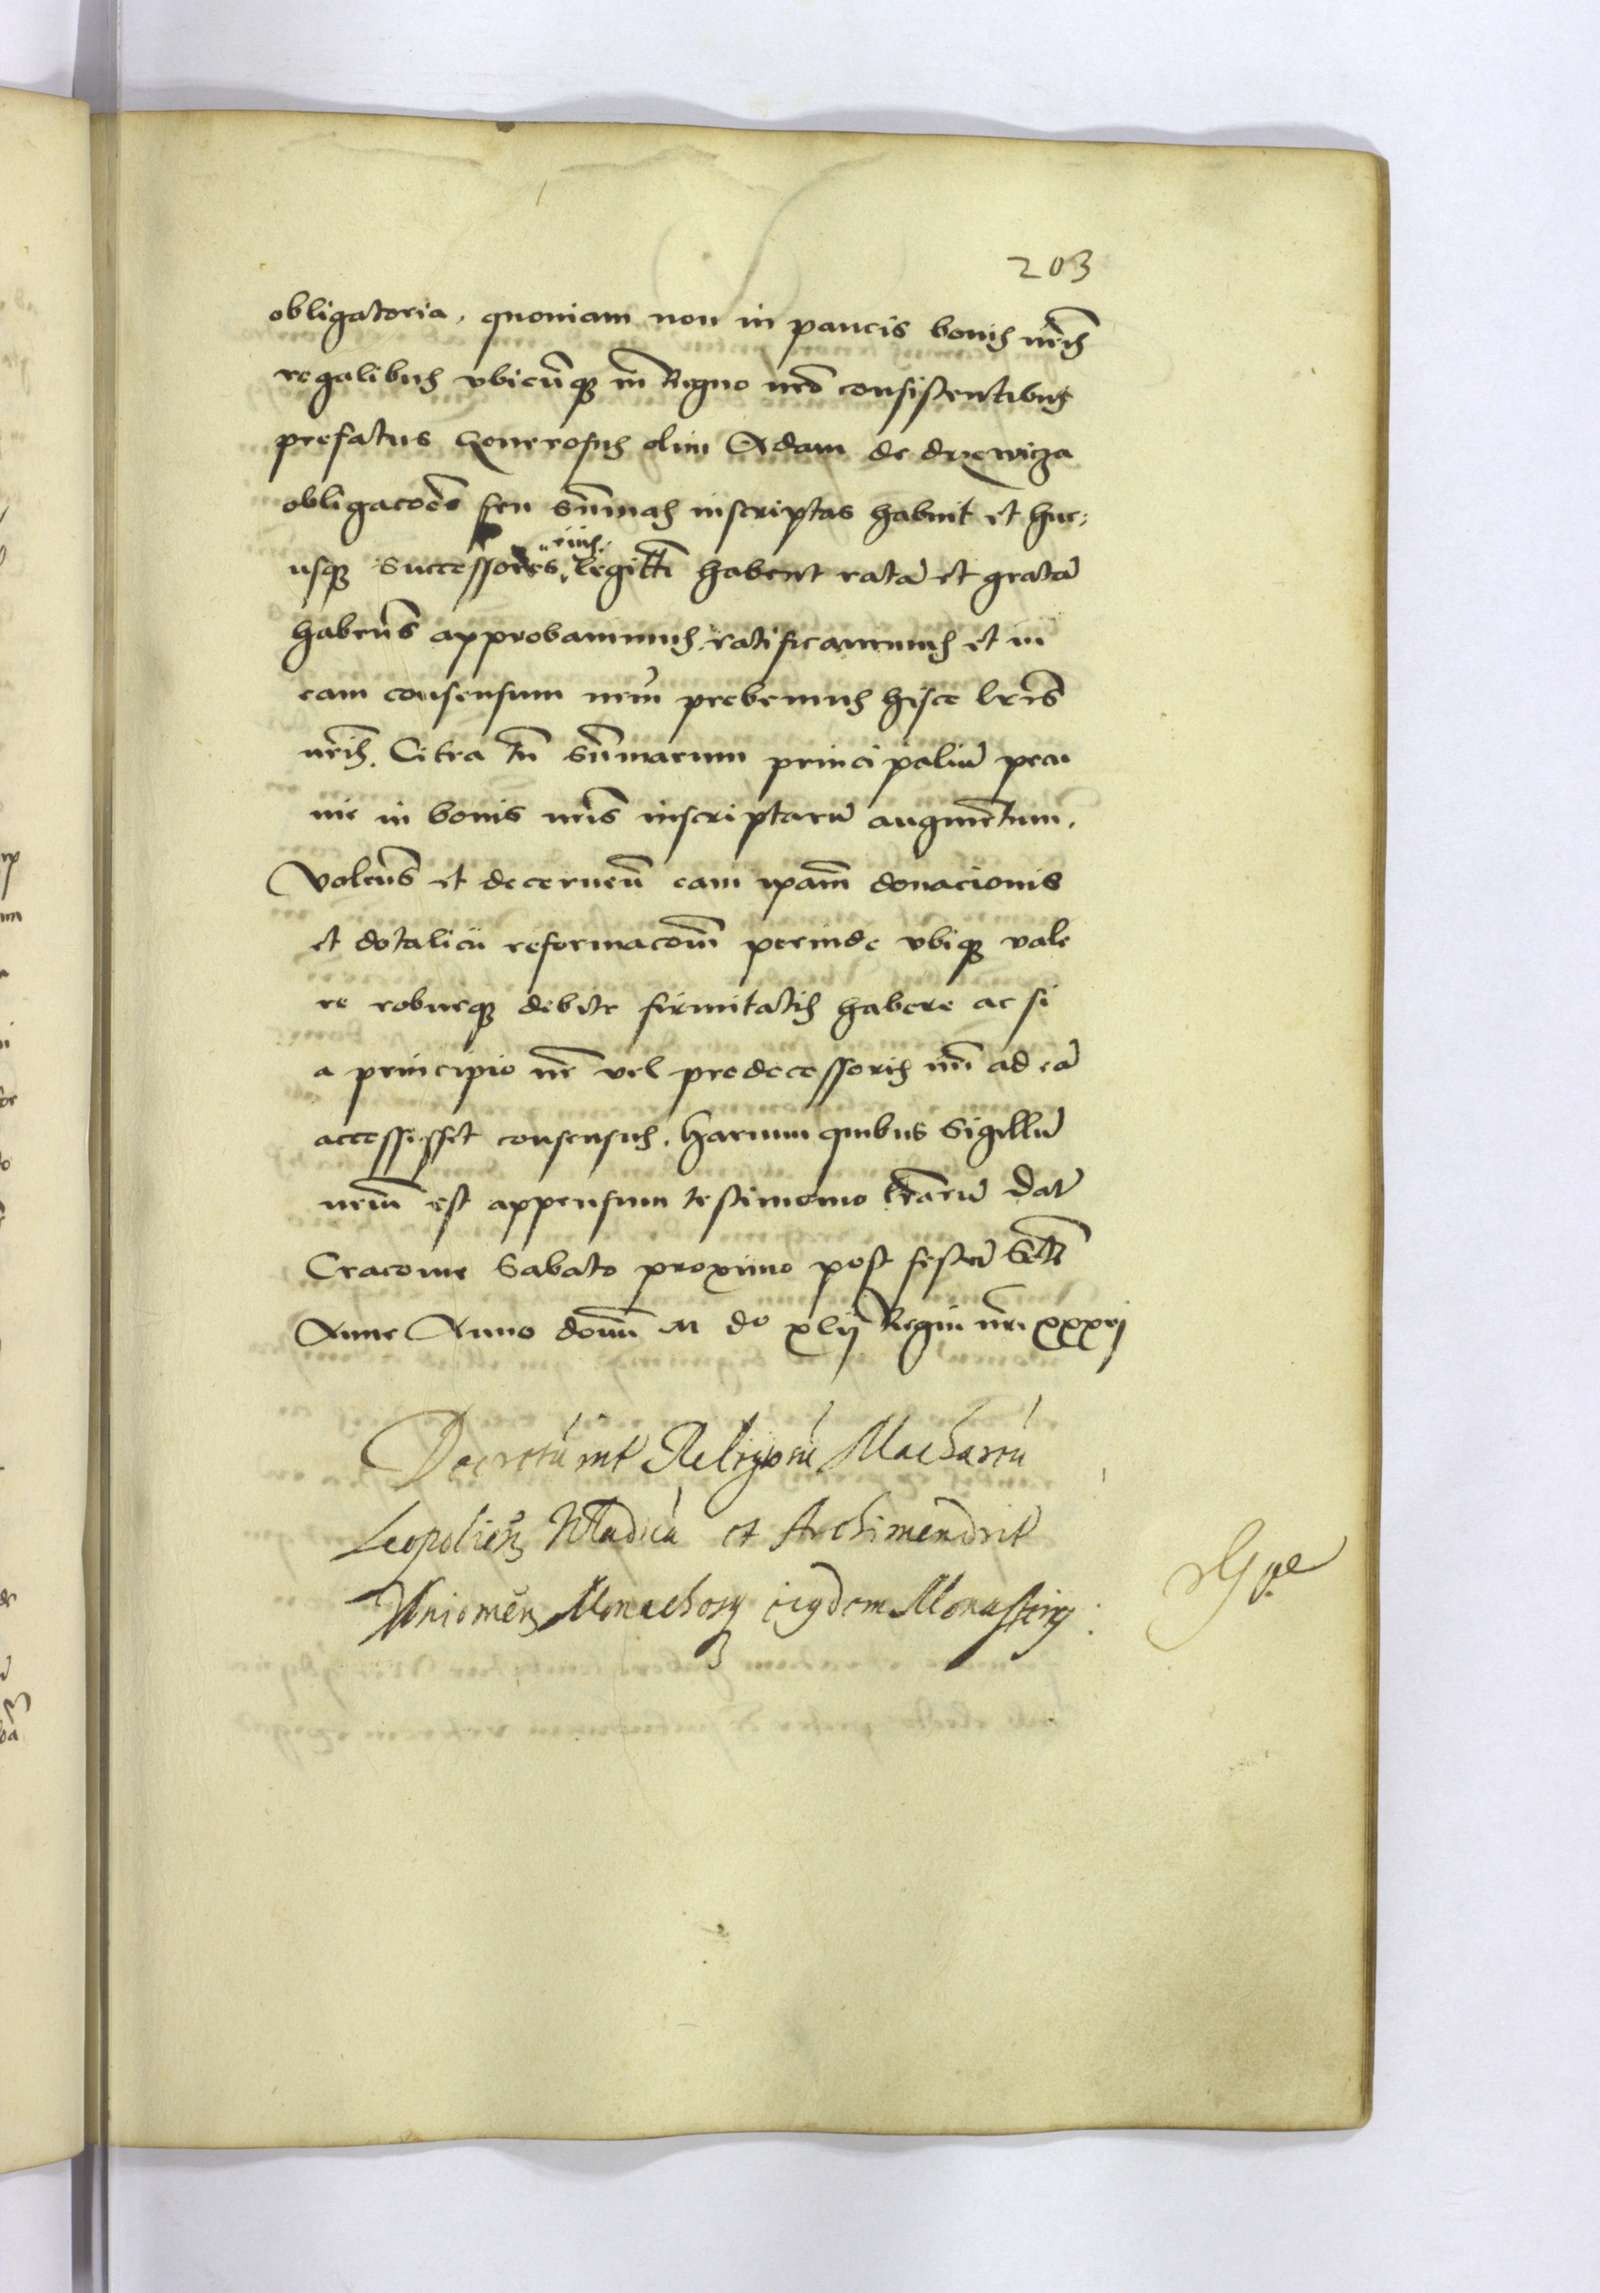 203
obligatoria, quoniam non in paucis bonis nr̃is
regalibus vbicũqꝫ in Regno nrõ consistentibus
prefatus Generosus olim Adam de drzewicza
obligacões seu sũmas inscriptas habuit et huc
usqꝫ successores eius legitti habent ratã et gratã
habeñs approbauimus ratificauimus et in
eam consensum nrm̃ prebemus hisce lr̃is
nr̃is. Citra tñ sũmarum principaliũ pecu
nie in bonis nr̃is inscriptarũ augmẽtum.
Voleñs et decerneñ eam ipam̃ donacionis
et dotalicii reformacom̃ perinde vbiqꝫ vale
re roburqꝫ debite firmitatis habere ac si
a principio nr̃ vel predecessoris nr̃i ad eã
accessissit consensus. Harum quibus Sigillũ
nrm̃ est appensum testimonio lr̃arũ Dat̃
Cracouie Sabato proximo post festũ Sctẽ
Anne Anno domi M do xlij Regni nr̃i xxxvj
Decretũ int Religiosũ Machariũ
Leopolieñ Wladicã et Archimandrit
Vnioweñ Monachosqꝫ eiusdem Monasterij